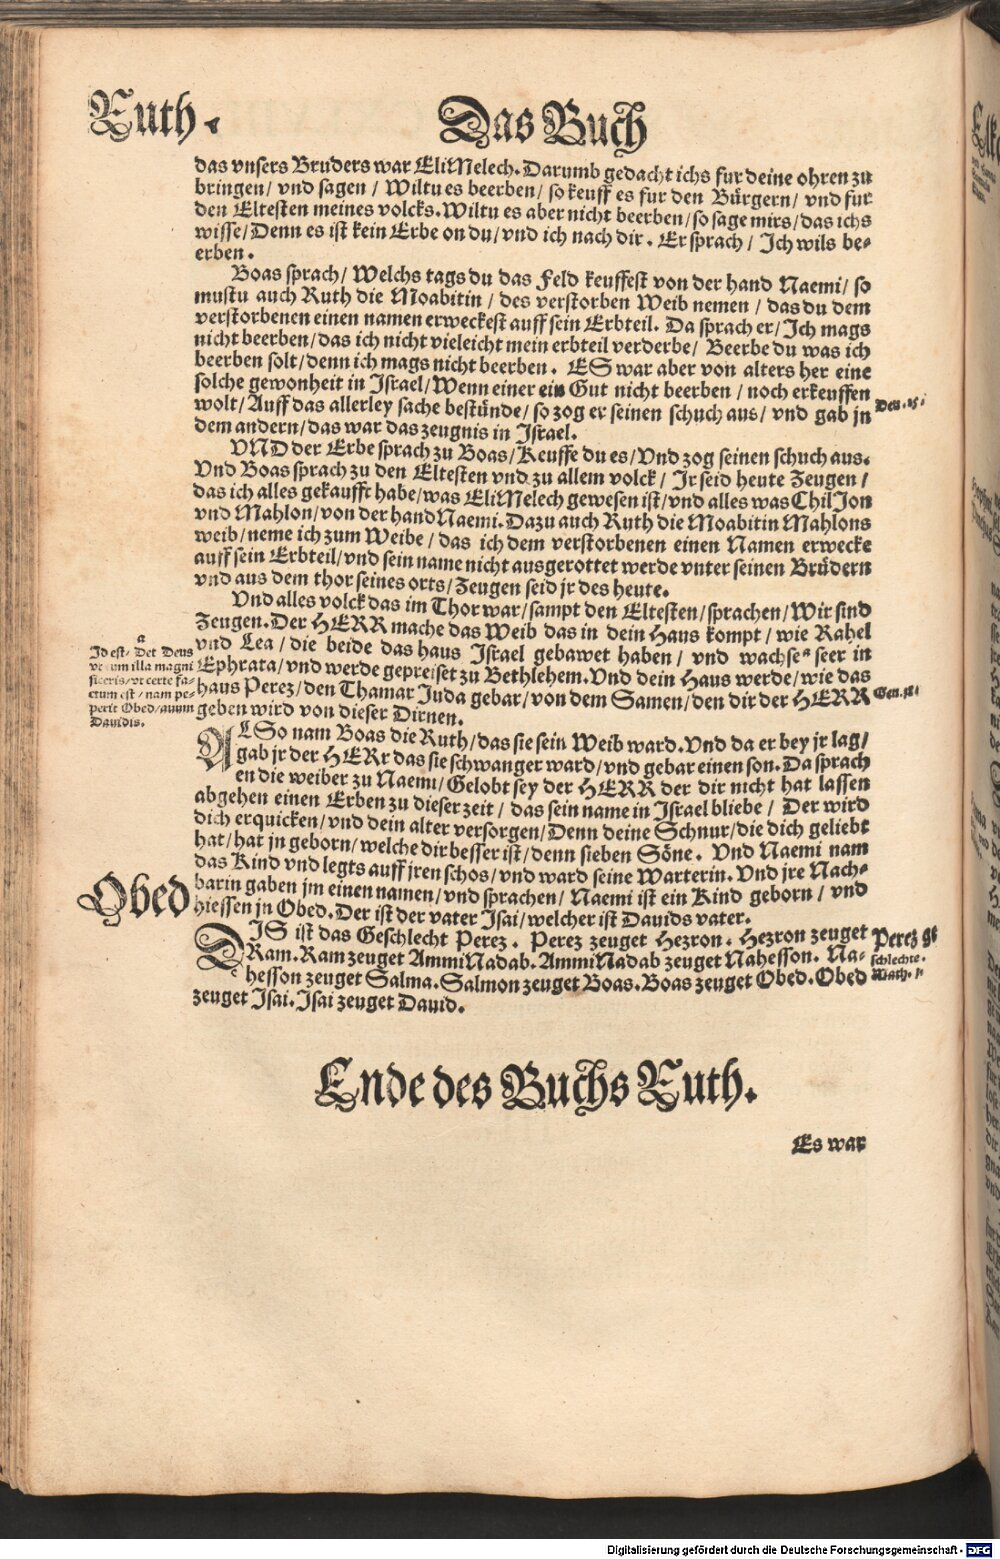 Ruth.
Das Buch
das vnsers Bruders war EliMelech. Darumb gedacht ichs fur deine ohren zu
bringen/ vnd sagen / Wiltu es beerben/ so keuff es fur den Bürgern/ vnd fur
den Eltesten meines volcks. Wiltu es aber nicht beerben/ so sage mirs/ das ichs
wisse/ Denn es ist kein Erbe on du/ vnd ich nach dir. Er sprach/ Ich wils be-
erben.
Boas sprach/ Welchs tags du das Feld keuffest von der hand Naemi/ so
mustu auch Ruth die Moabitin / des verstorben Weib nemen / das du dem
verstorbenen einen namen erweckest auff sein Erbteil. Da sprach er/ Ich mags
nicht beerben/ das ich nicht vieleicht mein erbteil verderbe/ Beerbe du was ich
beerben solt/ denn ich mags nicht beerben. ES war aber von alters her eine
solche gewonheit in Israel/ Wenn einer ein Gut nicht beerben / noch erkeuffen
wolt/ Auff das allerley sache bestünde/ so zog er seinen schuch aus/ vnd gab jn
Deu. 25.
dem andern/ das war das zeugnis in Israel.
VND der Erbe sprach zu Boas/ Keuffe du es/ Vnd zog seinen schuch aus.
Vnd Boas sprach zu den Eltesten vnd zu allem volck/ Ir seid heute Zeugen/
das ich alles gekaufft habe/ was EliMelech gewesen ist/ vnd alles was ChilJon
vnd Mahlon/ von der hand Naemi. Dazu auch Ruth die Moabitin Mahlons
weib/ neme ich zum Weibe/ das ich dem verstorbenen einen Namen erwecke
auff sein Erbteil/ vnd sein name nicht ausgerottet werde vnter seinen Brüdern
vnd aus dem thor seines orts/ Zeugen seid jr des heute.
Vnd alles volck das im Thor war/ sampt den Eltesten/ sprachen/ Wir sind
Zeugen. Der HERR mache das Weib das in dein Haus kompt/ wie Rahel
vnd Lea/ die beide das haus Israel gebawet haben/ vnd wachse a seer in
Ephrata/ vnd werde gepreiset zu Bethlehem. Vnd dein Haus werde/ wie das
haus Perez/ den Thamar Juda gebar/ von dem Samen/ den dir der HERR
Gen.
geben wird von dieser Dirnen.
a
Id est, Det Deus
vt illa magni
ficeris/ vt certe fa-
ctum est / nam pe-
perit Obed/ auum
Dauidis.
ALSo nam Boas die Ruth/ das sie sein Weib ward. Vnd da er bey jr lag/
gab jr der HERr das sie schwanger ward/ vnd gebar einen son. Da sprach
en die weiber zu Naemi/ Gelobt sey der HERR der dir nicht hat lassen
abgehen einen Erben zu dieser zeit/ das sein name in Israel bliebe/ Der wird
dich erquicken/ vnd dein alter versorgen/ Denn deine Schnur/ die dich geliebt
hat/ hat jn geborn/ welche dir besser ist/ denn sieben Söne. Vnd Naemi nam
das Kind vnd legts auff jren schos/ vnd ward seine Warterin. Vnd jre Nach-
barin gaben jm einen namen/ vnd sprachen/ Naemi ist ein Kind geborn/ vnd
Obed
hiessen jn Obed. Der ist der vater Isai/ welcher ist Dauids vater.
DIS ist das Geschlecht Perez. Perez zeuget Hezron. Hezron zeuget
Ram. Ram zeuget AmmiNadab. AmmiNadab zeuget Nahesson. Na-
hesson zeuget Salma. Salmon zeuget Boas. Boas zeuget Obed. Obed
zeuget Isai. Isai zeuget Dauid.
Perez ge
schlechte.
Matt.
Ende des Buchs Ruth.
Es war
Digitalisierung gefördert durch die Deutsche Forschungsgemeinschaft - DFG